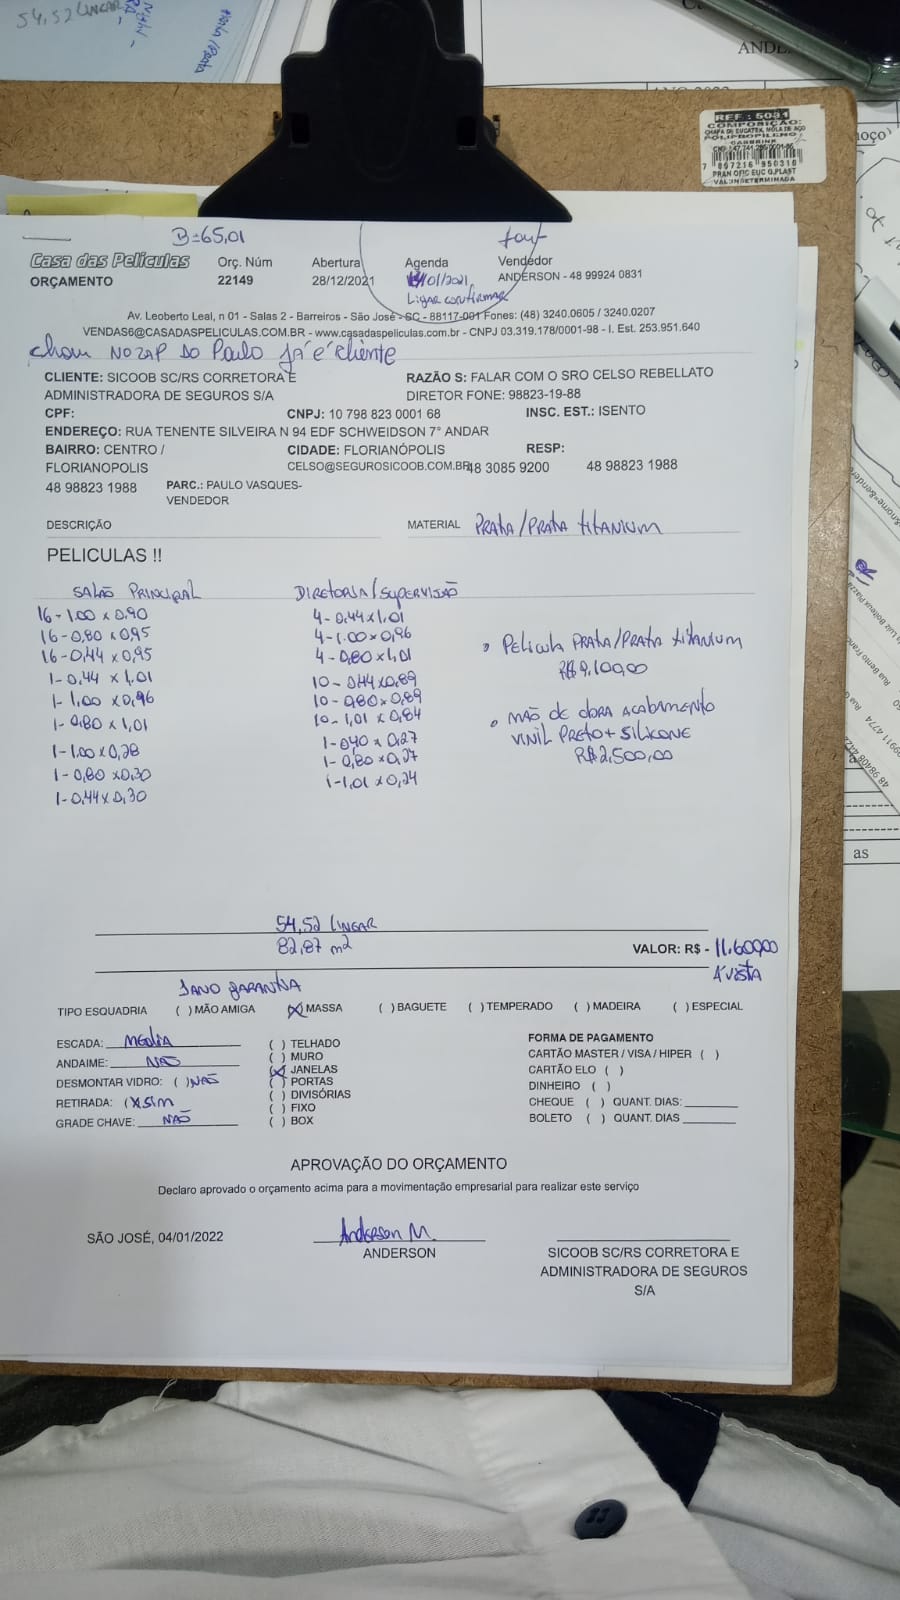 54,52 LINEAR
REF.: 5031
COMPOSIÇÃO:
CHAPA DE EUCATEX, MOLA DE AÇO
POLIPROPILENO
7 897216 950310
PRAN OFIC EUC G.PLAST
VAL:INDETERMINADA
B=65,01
Casa das Películas Orç. Núm Abertura Agenda Vendedor
ORÇAMENTO 22149 28/12/2021 /01/2021 ANDERSON - 48 99924 0831
Ligar confirmar
Av. Leoberto Leal, n 01 - Salas 2 - Barreiros - São José - SC - 88117-001 Fones: (48) 3240.0605 / 3240.0207
VENDAS6@CASADASPELICULAS.COM.BR - www.casadaspeliculas.com.br - CNPJ 03.319.178/0001-98 - I. Est. 253.951.640
NO ZAP DO Paulo JÁ É cliente
CLIENTE: SICOOB SC/RS CORRETORA E RAZÃO S: FALAR COM O SRO CELSO REBELLATO
ADMINISTRADORA DE SEGUROS S/A DIRETOR FONE: 98823-19-88
CPF: CNPJ: 10 798 823 0001 68 INSC. EST.: ISENTO
ENDEREÇO: RUA TENENTE SILVEIRA N 94 EDF SCHWEIDSON 7° ANDAR
BAIRRO: CENTRO / CIDADE: FLORIANÓPOLIS RESP:
FLORIANOPOLIS CELSO@SEGUROSICOOB.COM.BR 48 3085 9200 48 98823 1988
48 98823 1988 PARC.: PAULO VASQUES-
VENDEDOR
DESCRIÇÃO MATERIAL PRATA/PRATA titANIUM
PELICULAS !!
SALÃO PRINCIPAL DIRETORIA/SUPERVISÃO
16-1.00 x 0,90 4-0,44x1,01
16-0,80 x0,95 4-1.00x0,96
16-0,44 x0,95 4-0,80x1,01
1-0,44 x 1,01 10-0,44x0,89
1-1,00 x0,96 10-0,80x0,89
1-0,80 x 1,01 10-1,01 x 0,84
1-1.00 x 0,28 1-0,40 x 0,27
1-0,80 x0,30 1-0,80 x0,27
1-0,44x 0,30 1-1,01 x 0,24
• Película PRATA/PRATA titANIUM
R$9.100,00
• MÃO DE OBRA ACABAMENTO
VINIL PRETO + SILICONE
R$2.500,00
54,52 LINEAR
82,87 m2 VALOR: R$ - 11.600,00
À VISTA
GARANTIA
TIPO ESQUADRIA ( ) MÃO AMIGA (X) MASSA ( ) BAGUETE ( ) TEMPERADO ( ) MADEIRA ( ) ESPECIAL
ESCADA: MEDIA ( ) TELHADO FORMA DE PAGAMENTO
ANDAIME: NÃO ( ) MURO CARTÃO MASTER / VISA / HIPER ( )
DESMONTAR VIDRO: ( ) NÃO (X) JANELAS CARTÃO ELO ( )
RETIRADA: (X SIM ( ) PORTAS DINHEIRO ( )
GRADE CHAVE: NÃO ( ) DIVISÓRIAS CHEQUE ( ) QUANT. DIAS:
( ) FIXO BOLETO ( ) QUANT. DIAS
( ) BOX
APROVAÇÃO DO ORÇAMENTO
Declaro aprovado o orçamento acima para a movimentação empresarial para realizar este serviço
SÃO JOSÉ, 04/01/2022 Anderson M.
ANDERSON
SICOOB SC/RS CORRETORA E
ADMINISTRADORA DE SEGUROS
S/A
as